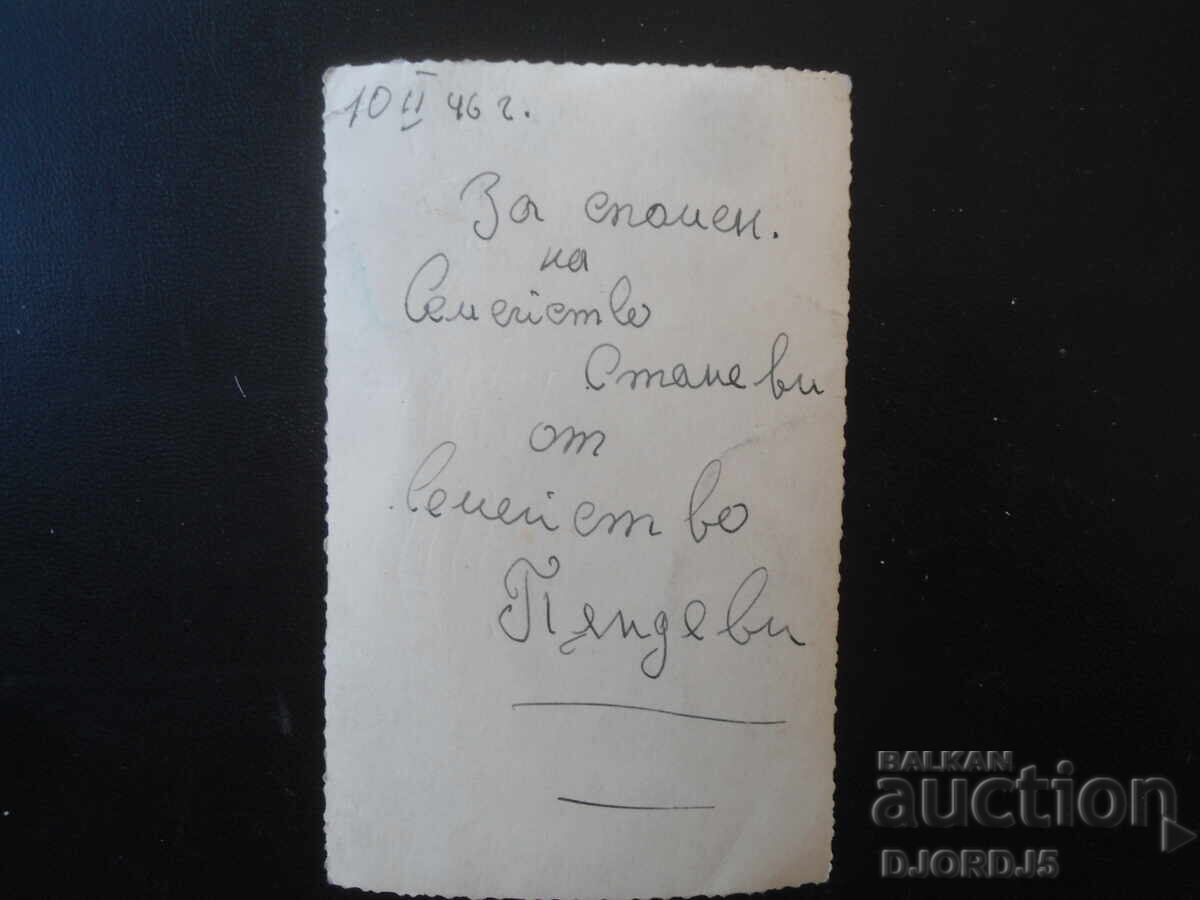 10 II 46 г.
За спомен.
на
Семейство
Станеви
от
Семейство
Пендеви
BALKAN
auction
DJORDJ5